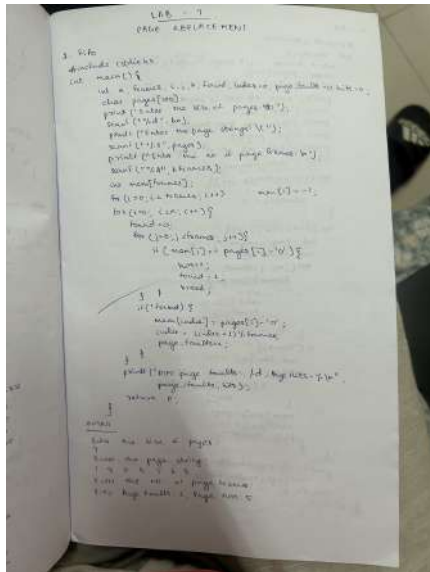 LAB - 7
PAGE REPLACEMENT
1. Fifo
#include <stdio.h>
int main() {
int n, frames, i, j, k, found, index=0, page faults=0, hits=0;
char pages[100];
printf("Enter the size of pages:
scanf("%d", &n);
printf("Enter the page string: \n");
scanf("%s", pages);
printf("Enter the no of page frames: \n");
scanf("%d", &frames);
int mem[frames];
for (i=0; i<frames; i++) mem[i] = -1;
for (i=0; i<n; i++) {
found=0;
for (j=0; j<frames; j++) {
if (mem[j] == pages[i]-'0') {
hits++;
found = 1;
break;
} }
if (!found) {
mem[index] = pages[i]-'0';
index = (index+1) % frames;
page_faults++;
}
}
printf("FIFO page faults: %d, Page hits - %d\n",
page_faults, hits);
return 0;
}
OUTPUT
Enter the size of pages
7
Enter the page string
Enter the no. of page frames
FIFO Page Faults: Page hits: